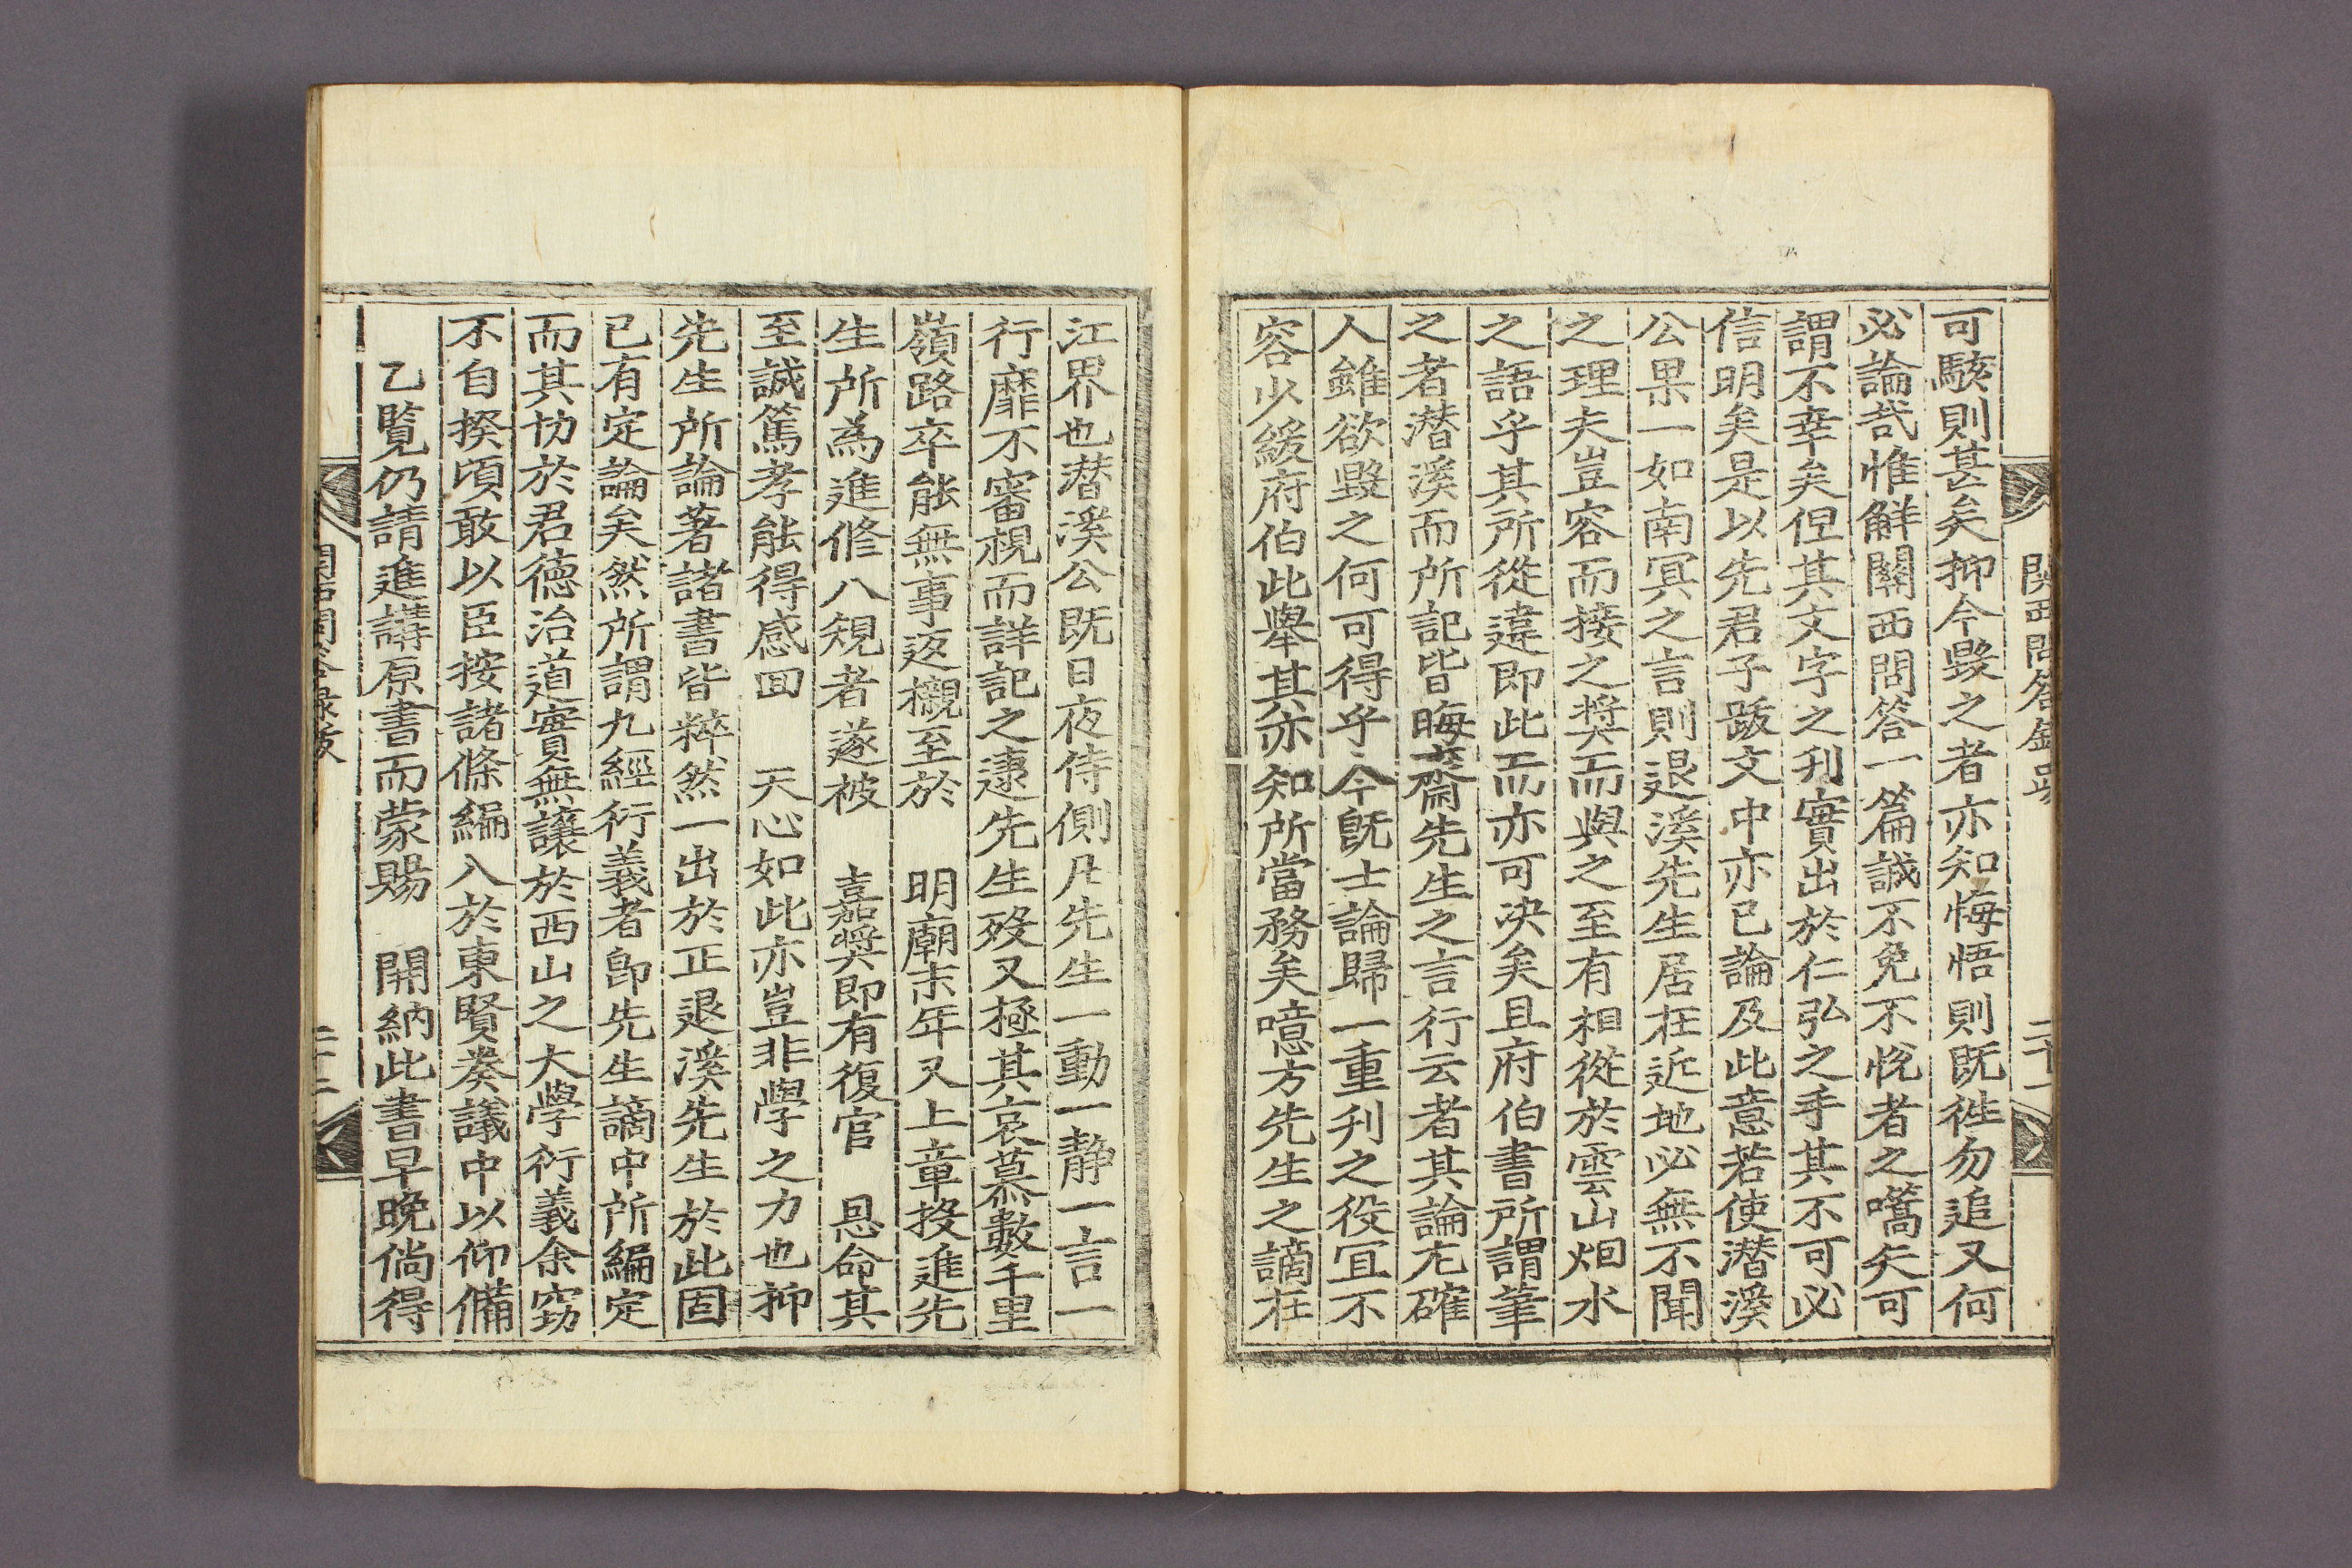 關西問答錄跋
二十一
可駭則甚矣抑今毀之者亦知悔悟則既徃勿追又何
必論哉惟鮮關西問答一篇誠不免不悅者之嚆矢可
謂不幸矣但其文字之刋實出於仁弘之手其不可必
信明矣是以先君子跋文中亦已論及此意若使潜溪
公果一如南冥之言則退溪先生居在近地必無不聞
之理夫豈容而接之奬而與之至有相從於雲山烟水
之語乎其所從違即此而亦可决矣且府伯書所謂筆
之者潜溪而所記皆晦齋先生之言行云者其論尤確
人雖欲毀之何可得乎今既士論歸一重刋之役宜不
容少緩府伯此舉其亦知所當務矣噫方先生之謫在
江界也潜溪公既日夜侍側凡先生一動一静一言一
行靡不審視而詳記之逮先生歿又極其哀慕數千里
嶺路卒能無事返櫬至於　明廟末年又上章投進先
生所為進修八䂓者遂被　嘉奬即有復官　恩命其
至誠篤孝能得感回　天心如此亦豈非學之力也抑
先生所論著諸書皆粹然一出於正退溪先生於此固
已有定論矣然所謂九經衍義者即先生謫中所編定
而其切於君德治道實無讓於西山之大學衍義余竊
不自揆頃敢以臣按諸條編入於東賢奏議中以仰備
乙覽仍請進講原書而蒙賜　開納此書早晚倘得
關西問答錄跋
二十二